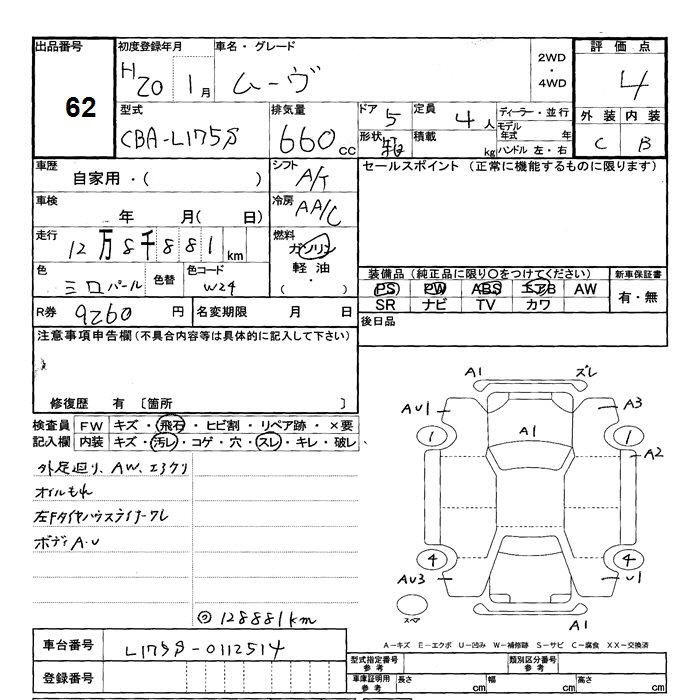 出品番号 62
初度登録年月 H20 1月
車名・グレード ムーヴ
2WD・4WD
評価点 4
外装 内装
C B
型式 CBA-L175S
排気量 660cc
ドア 5
定員 4人
ディーラー・並行
モデル年式 年
形状 箱
積載 kg
ハンドル 左・右
車歴 自家用・( )
シフト A/T
セールスポイント (正常に機能するものに限ります)
車検 年 月( 日)
冷房 AA/C
走行 12万8千881km
燃料 ガソリン
軽油
・( )
色 シロパール
色替
色コード W24
装備品 (純品に限り○をつけてください)
新車保証書
PS PW ABS エアB AW
有・無
SR ナビ TV カワ
R券 9260円
名変期限 月 日
後日品
注意事項申告欄(不具合内容等は具体的に記入して下さい)
修復歴 有 〔箇所 〕
検査員 FW キズ・飛石・ヒビ割・リペア跡・×要
記入欄 内装 キズ・汚レ・コゲ・穴・スレ・キレ・破レ
外足廻り、AW、エクリ
オイルもれ
左Fタイヤハウスライナークレ
ボディA.U
◎128881km
A1 ズレ
AU1 A3
1 A1 1
A2
4 4
AU3 U1
スペア
A1
A-キズ E-エクボ U-凹み W-補修跡 S-サビ C-腐食 XX-交換済
車台番号 L175S-0112514
登録番号
型式指定番号 参考
類別区分番号 参考
車庫証明用 参考 長さ cm 幅 cm 高さ cm